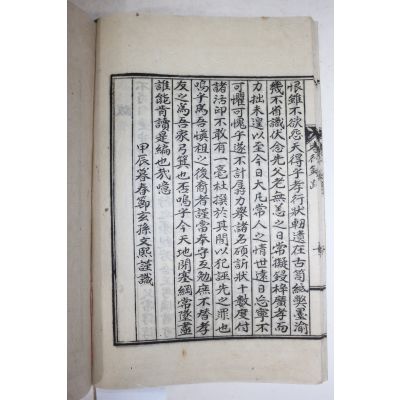 恨雖不欲怨天得乎孝行狀軔遺在古笥紙弊墨渝
幾不首識伏念先父老無恙之日常擬鋟梓廣孝而
力拙未遑以至今日大凡常人之情世遠日忘寧不
可懼可愧乎遂不計孱力擧諸名碩訢狀十數度付
諸活印不敢有一毫杜撰於其間以犯誣先之罪也
嗚乎爲吾愼祖之後裔者謹當奉守互勉庶不替孝
友之爲吾家弓箕也否嗚乎今天地閉塞綱常墜盡
誰能肯讀是編也哉噫
甲辰暮春鄭玄孫文熙謹識